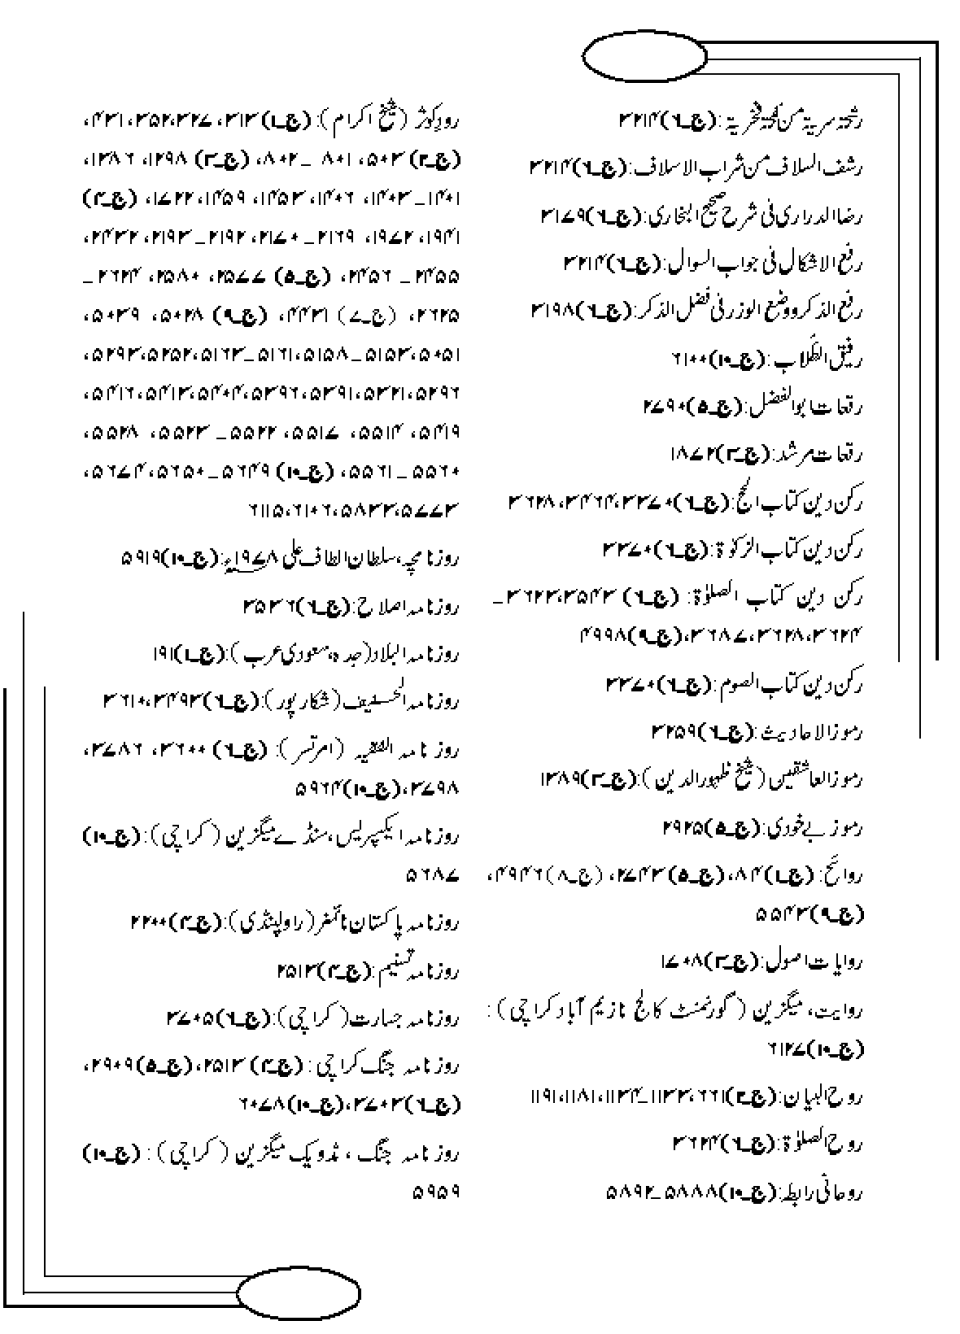 رشحۃ سریۃ من نفحۃ فخریۃ: (ج۔۶)۳۲۱۴
رشف السلاف من شراب الاسلاف: (ج۔۶)۳۲۱۴
رضا الدراری فی شرح صحیح البخاری: (ج۔۶)۳۱۷۹
رفع الاشکال فی جواب السوال: (ج۔۶)۳۲۱۴
رفع الذکر ووضع الوزر فی فضل الذکر: (ج۔۶)۳۱۹۸
رفیق الطّلاب: (ج۔۱۰)۶۱۰۰
رقعات ابوالفضل: (ج۔۵)۲۷۹۰
رقعات مرشد: (ج۔۳)۱۸۷۲
رکن دین کتاب الحج: (ج۔۶)۳۳۷۰، ۳۴۶۴، ۳۶۲۸
رکن دین کتاب الزکوٰۃ: (ج۔۶)۳۳۷۰
رکن دین کتاب الصلوٰۃ: (ج۔۶) ۳۵۴۳، ۳۶۲۳۔
۳۶۲۴، ۳۶۲۸، ۳۶۸۷، (ج۔۹)۴۹۹۸
رکن دین کتاب الصوم: (ج۔۶)۳۳۷۰
رموز الاحادیث: (ج۔۶)۳۲۵۹
رموز العاشقین (شیخ ظہور الدین): (ج۔۳)۱۳۸۹
رموز بے خودی: (ج۔۵)۲۹۲۵
روائح: (ج۔۱)۸۴، (ج۔۵)۲۷۴۳، (ج۔۸)۴۹۴۶،
(ج۔۹)۵۵۴۳
روایات اصول: (ج۔۳)۱۷۰۸
روایت، میگزین (گورنمنٹ کالج ناظم آباد کراچی):
(ج۔۱۰)۶۱۲۷
روح البیان: (ج۔۲)۶۶۱، ۱۱۳۳۔۱۱۳۴، ۱۱۸۱، ۱۱۹۱
روح الصلوٰۃ: (ج۔۶)۳۶۲۴
روحانی رابطہ: (ج۔۱۰)۵۸۸۸۔۵۸۹۲
رودِکوثر (شیخ اکرام): (ج۔۱)۳۱۳، ۳۲۷، ۳۵۲، ۴۳۱،
(ج۔۲)۵۰۳، ۸۰۱ ۔۸۰۲، (ج۔۳) ۱۲۹۸، ۱۳۸۶،
۱۴۰۱ ۔۱۴۰۳، ۱۴۰۶، ۱۴۵۳، ۱۴۵۹، ۱۷۲۲، (ج۔۴)
۱۹۴۱، ۱۹۷۲، ۲۱۶۹ ۔۲۱۷۰، ۲۱۹۲ ۔۲۱۹۳، ۲۴۳۲،
۲۴۵۵ ۔ ۲۴۵۶، (ج۔۵) ۲۵۷۷، ۲۵۸۰، ۲۶۲۴ ۔
۲۶۲۵، (ج۔۷) ۴۴۳۱، (ج۔۹) ۵۰۲۸، ۵۰۳۹،
۵۰۵۱، ۵۱۵۳ ۔۵۱۵۸، ۵۱۶۱۔۵۱۶۳، ۵۲۵۲، ۵۲۹۳،
۵۲۹۶، ۵۳۲۱، ۵۳۹۱، ۵۳۹۶، ۵۴۰۴، ۵۴۱۳، ۵۴۱۶،
۵۴۱۹، ۵۵۱۴، ۵۵۱۷، ۵۵۲۲ ۔ ۵۵۲۳، ۵۵۲۸،
۵۵۶۰ ۔۵۵۶۱، (ج۔۱۰)۵۶۴۹ ۔۵۶۵۰، ۵۶۷۴،
۵۷۷۳، ۵۸۳۳، ۶۱۰۶، ۶۱۱۵
روزنامچہ، سلطان الطاف علی ۱۹۷۸ء: (ج۔۱۰)۵۹۱۹
روزنامہ اصلاح: (ج۔۶)۳۵۳۶
روزنامہ البلاد (جدہ، سعودی عرب): (ج۔۱)۱۹۱
روزنامہ الحسنیف (شکارپور): (ج۔۶)۳۴۹۳، ۳۶۱۰
روزنامہ الفقیہ (امرتسر): (ج۔۶) ۳۶۰۰، ۳۷۸۶،
۳۷۹۸، (ج۔۱۰)۵۹۶۴
روزنامہ ایکسپریس، سنڈے میگزین (کراچی): (ج۔۱۰)
۵۶۸۷
روزنامہ پاکستان ٹائمز (راولپنڈی): (ج۔۴)۲۲۰۰
روزنامہ تسنیم: (ج۔۴)۲۵۱۳
روزنامہ جسارت (کراچی): (ج۔۶)۳۷۰۵
روزنامہ جنگ کراچی: (ج۔۴) ۲۵۱۳، (ج۔۵)۲۹۰۹،
(ج۔۶)۳۷۰۳، (ج۔۱۰)۶۰۷۸
روزنامہ جنگ، مڈویک میگزین (کراچی): (ج۔۱۰)
۵۹۵۹